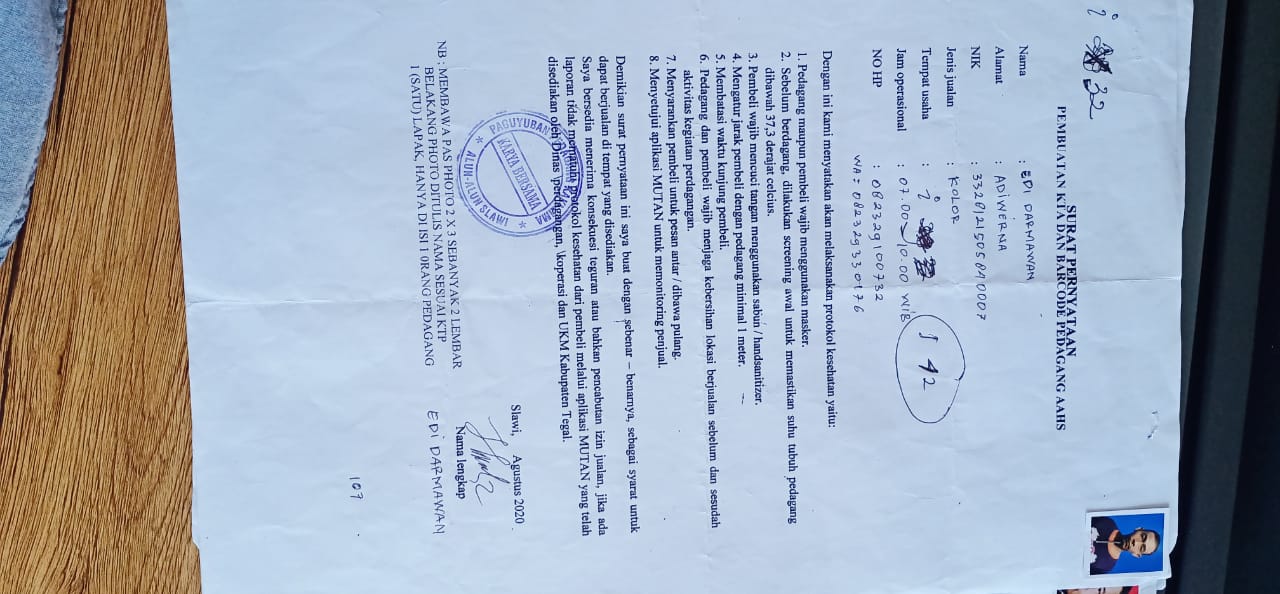 i 32
SURAT PERNYATAAN
PEMBUATAN KTA DAN BARCODE PEDAGANG AAHS
Nama : EDI DARMAWAN
Alamat : ADIWERNA
NIK :
Jenis jualan : KOLOR
Tempat usaha : i
Jam operasional : 07.00 10.00 WIB
I 42
NO HP : 082329100732
WA : 082329330176
Dengan ini kami menyatakan akan melaksanakan protokol kesehatan yaitu:
1. Pedagang maupun pembeli wajib menggunakan masker.
2. Sebelum berdagang, dilakukan screening awal untuk memastikan suhu tubuh pedagang
dibawah 37,3 derajat celcius.
3. Pembeli wajib mencuci tangan menggunakan sabun / handsanitizer.
4. Mengatur jarak pembeli dengan pedagang minimal 1 meter.
5. Membatasi waktu kunjung pembeli.
6. Pedagang dan pembeli wajib menjaga kebersihan lokasi berjualan sebelum dan sesudah
aktivitas kegiatan perdagangan.
7. Menyarankan pembeli untuk pesan antar / dibawa pulang.
8. Menyetujui aplikasi MUTAN untuk memonitoring penjual.
Demikian surat pernyataan ini saya buat dengan sebenar – benarnya, sebagai syarat untuk
dapat berjualan di tempat yang disediakan.
Saya bersedia menerima konsekuesi teguran atau bahkan pencabutan izin jualan, jika ada
laporan tidak mematuhi protokol kesehatan dari pembeli melalui aplikasi MUTAN yang telah
disediakan oleh Dinas perdagangan, koperasi dan UKM Kabupaten Tegal.
PAGUYUBAN
KARYA BERSAMA
ALUN-ALUN SLAWI
Slawi, Agustus 2020
Nama lengkap
EDI DARMAWAN
NB : MEMBAWA PAS PHOTO 2 X 3 SEBANYAK 2 LEMBAR
BELAKANG PHOTO DITULIS NAMA SESUAI KTP
1 (SATU) LAPAK, HANYA DI ISI 1 0RANG PEDAGANG
107